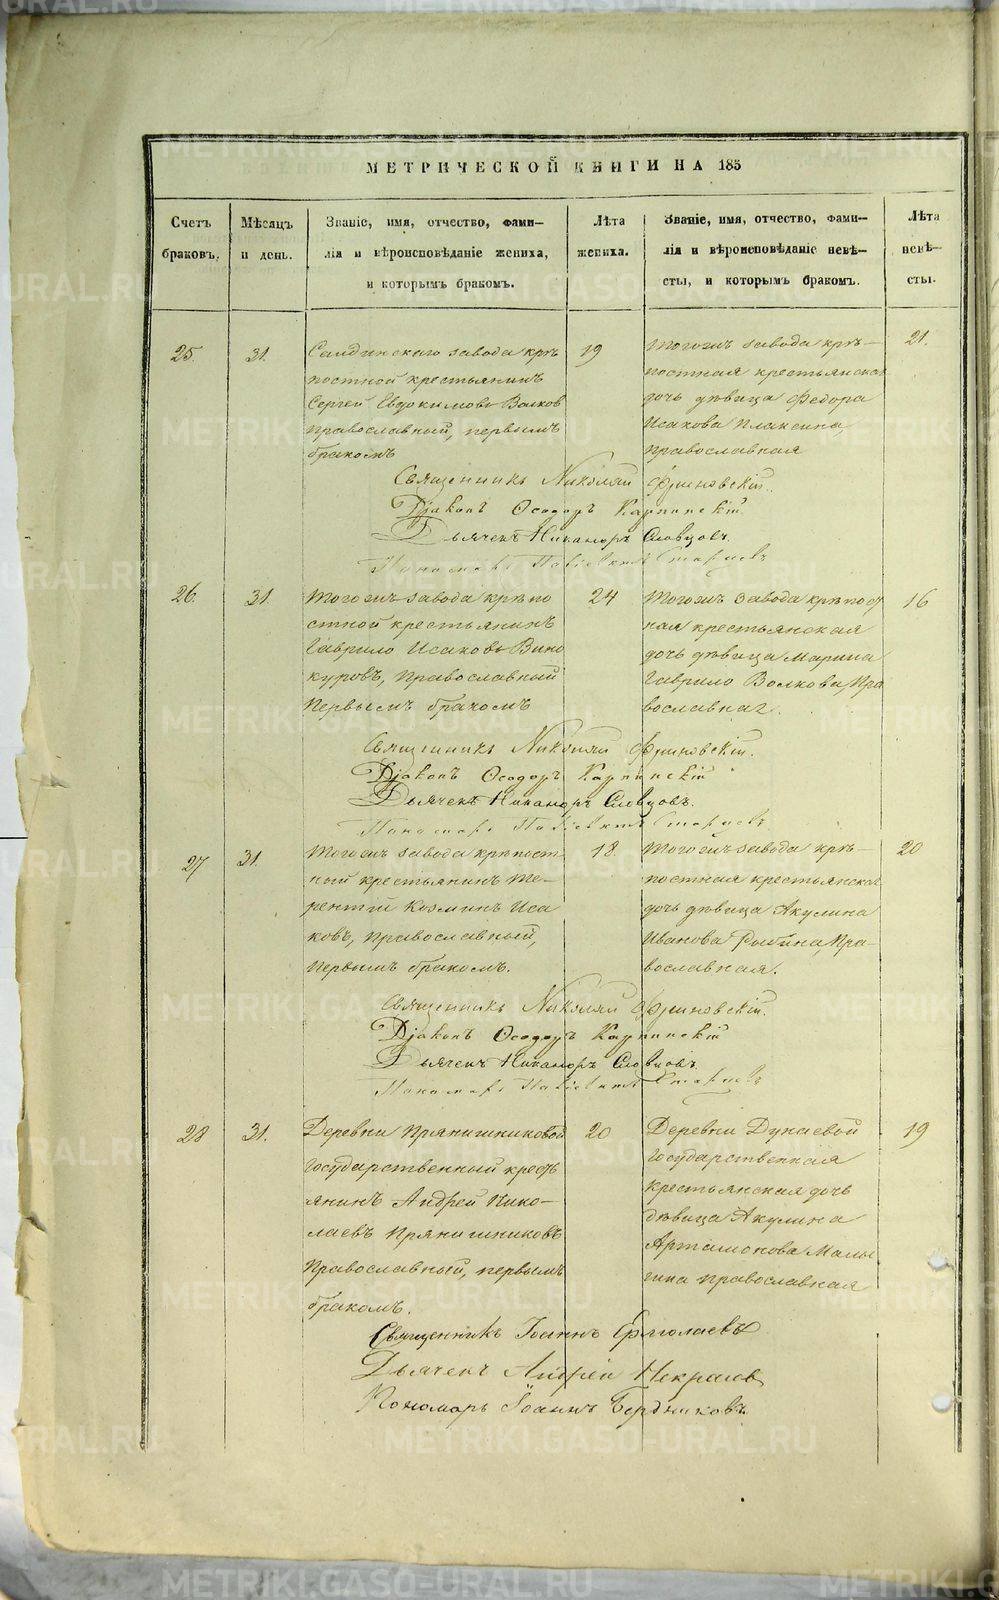 МЕТРИЧЕСКОЙ КНИГИ НА 185
Счетъ
браковъ.
Мѣсяцъ
и день.
Званіе, имя, отчество, фами-
лія и вѣроисповѣданіе жениха,
и которымъ бракомъ.
Лѣта
жениха.
Званіе, имя, отчество, фами-
лія и вѣроисповѣданіе невѣ-
сты, и которымъ бракомъ.
Лѣта
невѣ-
сты.
25
31.
Салдинскаго завода крѣ
постной крестьянинъ
Сергей Евдокимовъ Волков
православный, первымъ
бракомъ
19
Тогожъ завода крѣ-
постная крестьянская
дочь дѣвица Федора
Исакова Плаксина,
православная
21.
Священникъ Николай Фриновскій.
Діаконъ Ѳеодоръ Карпинскій
Дьячекъ Никаноръ Словцовъ.
Пономарь Старцевъ
26.
31.
Тогожъ завода крѣпо
стной крестьянинъ
Гаврило Исаковъ Вино
куровъ, православный
первымъ бракомъ
24
Тогожъ завода крѣпост
ная крестьянская
дочь дѣвица Марина
Гаврило Волкова, пра
вославная.
16
Священникъ Николай Фриновскій.
Діаконъ Ѳеодоръ Карпинскій
Дьячекъ Никаноръ Словцовъ.
Пономарь Старцевъ
27
31.
Тогожъ завода крѣпост
ный крестьянинъ Те-
рентій Козминъ Иса
ковъ, православный,
первымъ бракомъ.
18.
Тогожъ завода крѣ-
постная крестьянская
дочь дѣвица Акулина
Иванова Рыбина, пра-
вославная.
20
Священникъ Николай Фриновскій.
Діаконъ Ѳеодоръ Карпинскій
Дьячекъ Никаноръ Словцовъ.
Пономарь Старцевъ
28
31.
Деревни Прянишниковой
государственный кресть
янинъ Андрей Нико-
лаевъ Прянишниковъ
православный, первымъ
бракомъ.
20
Деревни Дунаевой
государственная
крестьянская дочь
дѣвица Акулина
Артамонова Малы
гина православная
19
Священникъ Іоаннъ Ермолаевъ
Дьячекъ Андрей Некрасов
Пономарь Іоаннъ Бердниковъ.
METRIKI.GASO-URAL.RU